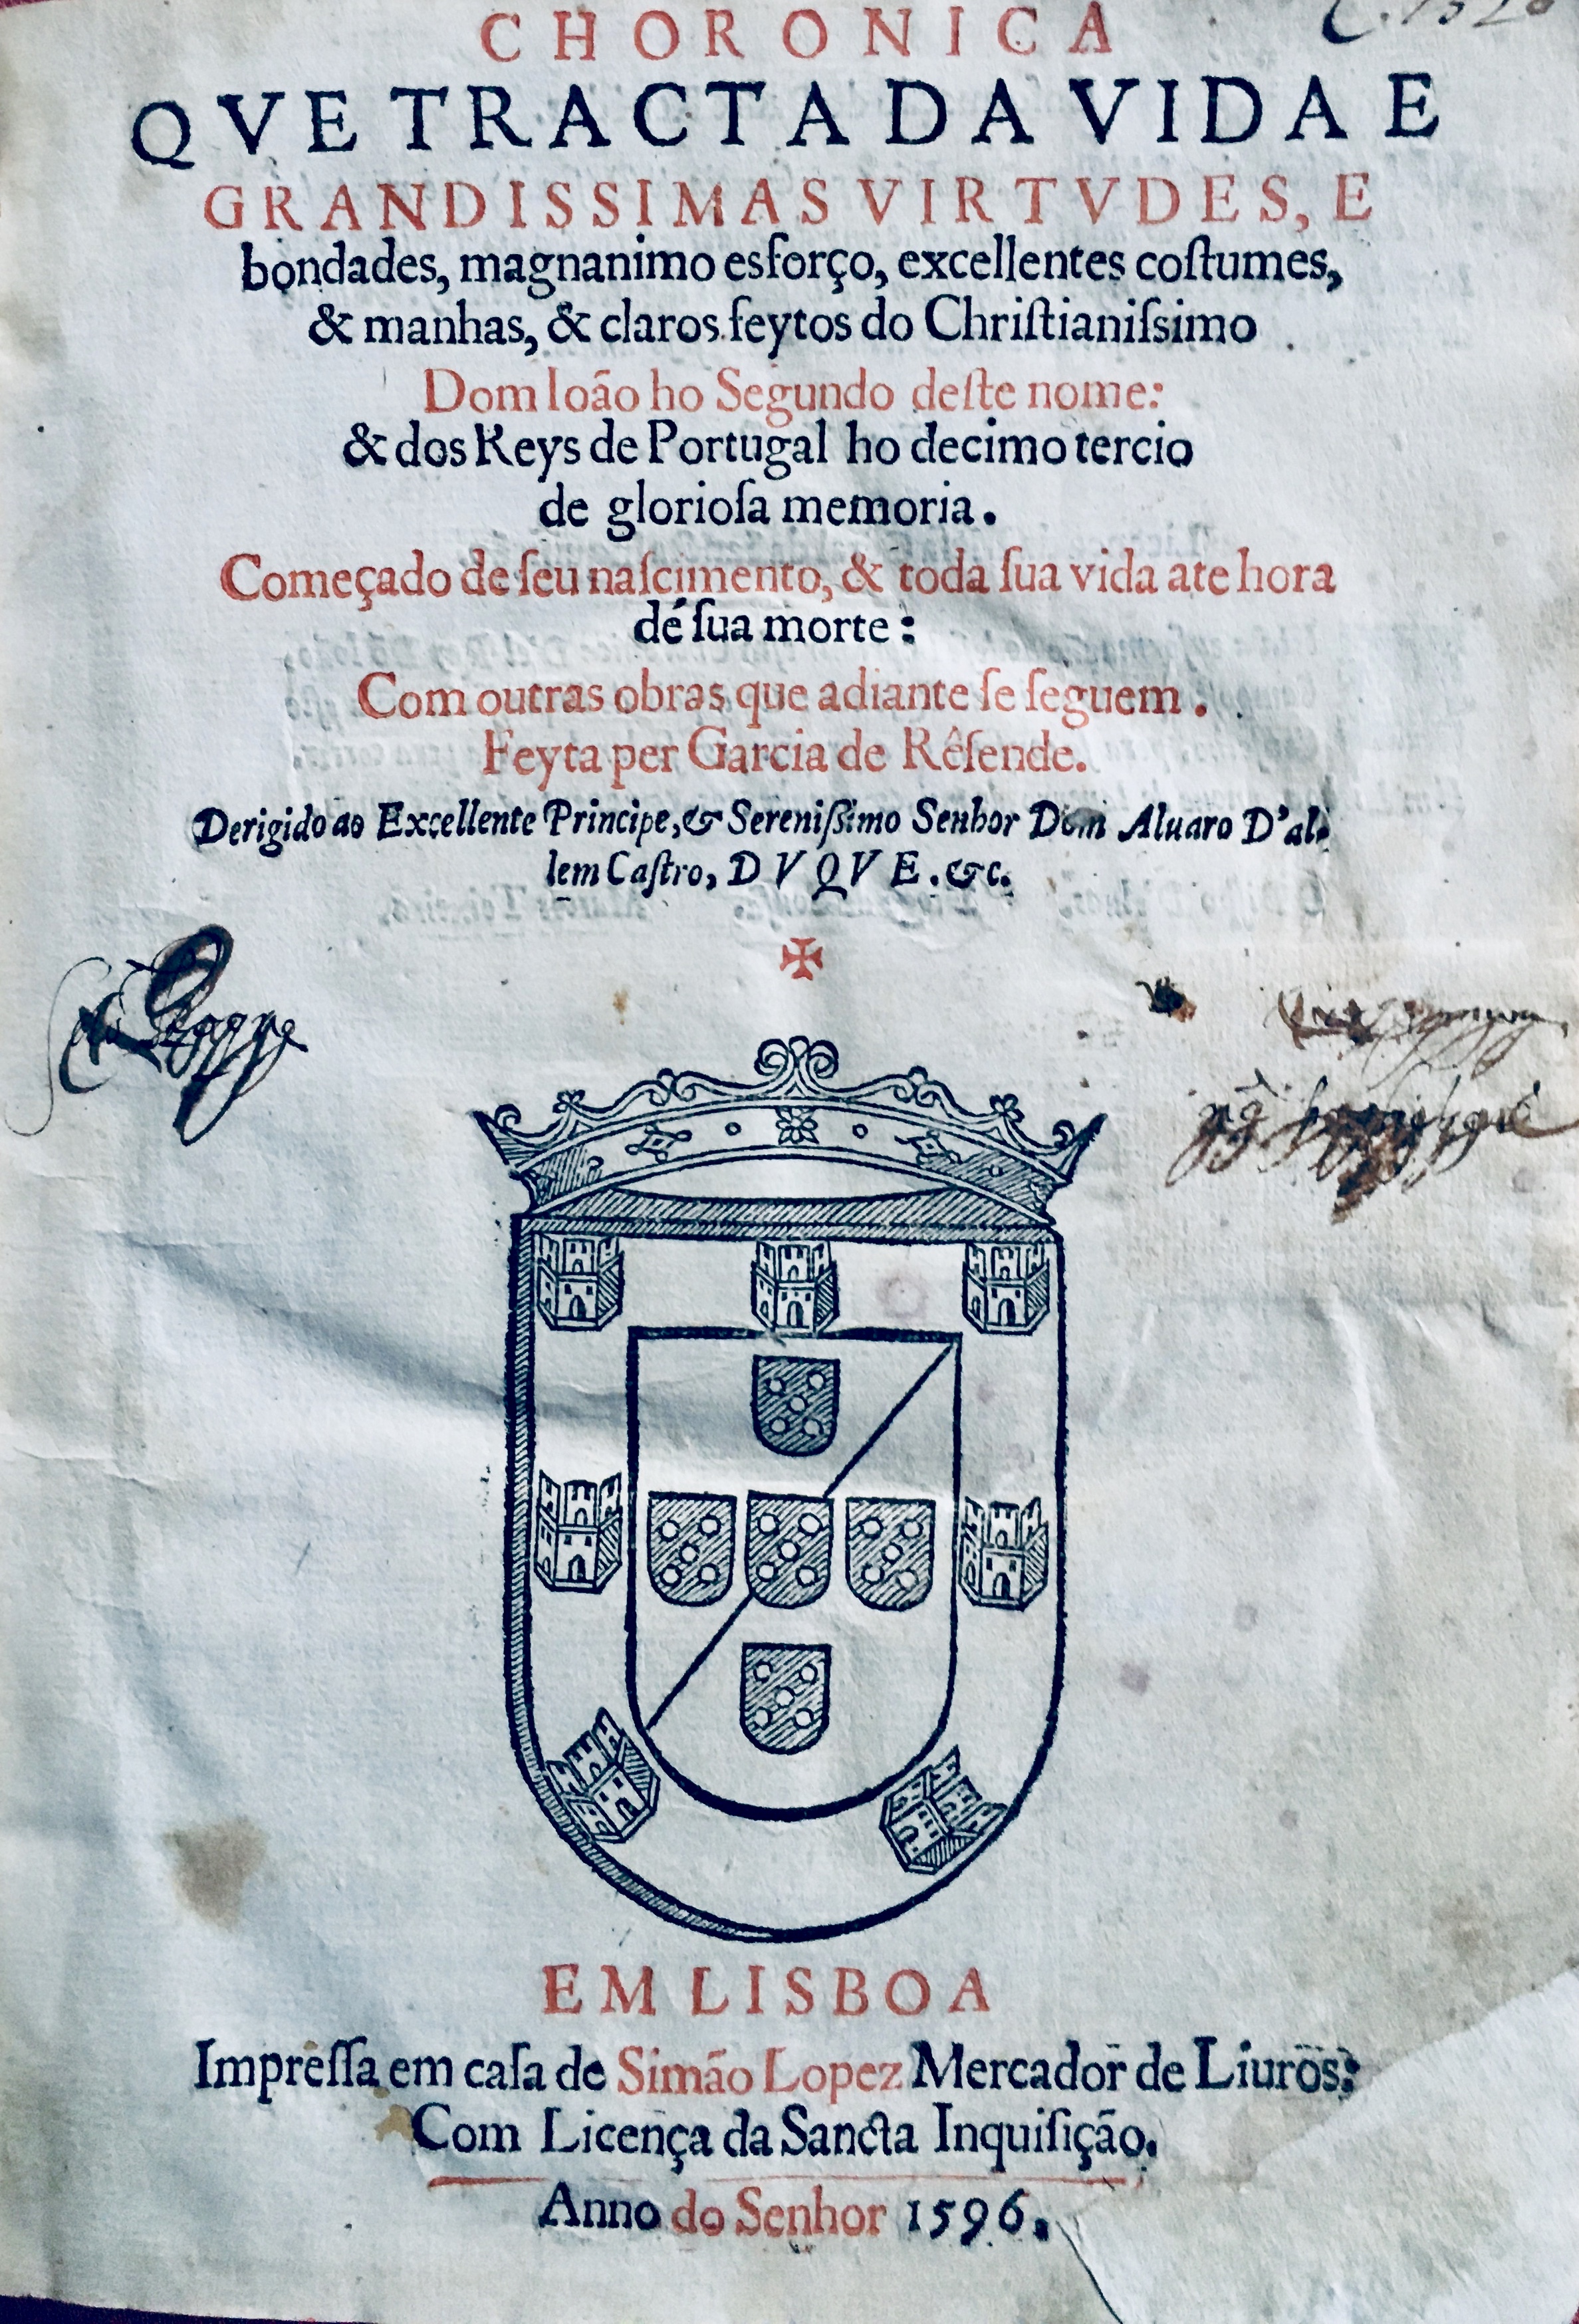 CHORONICA
QVE TRACTA DA VIDA E
GRANDISSIMAS VIRTVDES, E
bondades, magnanimo esforço, excellentes coſtumes,
& manhas, & claros feytos do Chriſtianiſsimo
Dom Ioão ho Segundo deſte nome:
& dos Reys de Portugal ho decimo tercio
de glorioſa memoria.
Começado de ſeu naſcimento, & toda ſua vida ate hora
dé ſua morte:
Com outras obras que adiante ſe ſeguem.
Feyta per Garcia de Rêſende.
Derigido ao Excellente Principe, & Sereniſsimo Senhor Dom Aluaro D'al
lem Caſtro, DVQVE. &c.
EM LISBOA
Impreſſa em caſa de Simão Lopez Mercador de Liuros:
Com Licença da Sancta Inquiſição.
Anno do Senhor 1596.